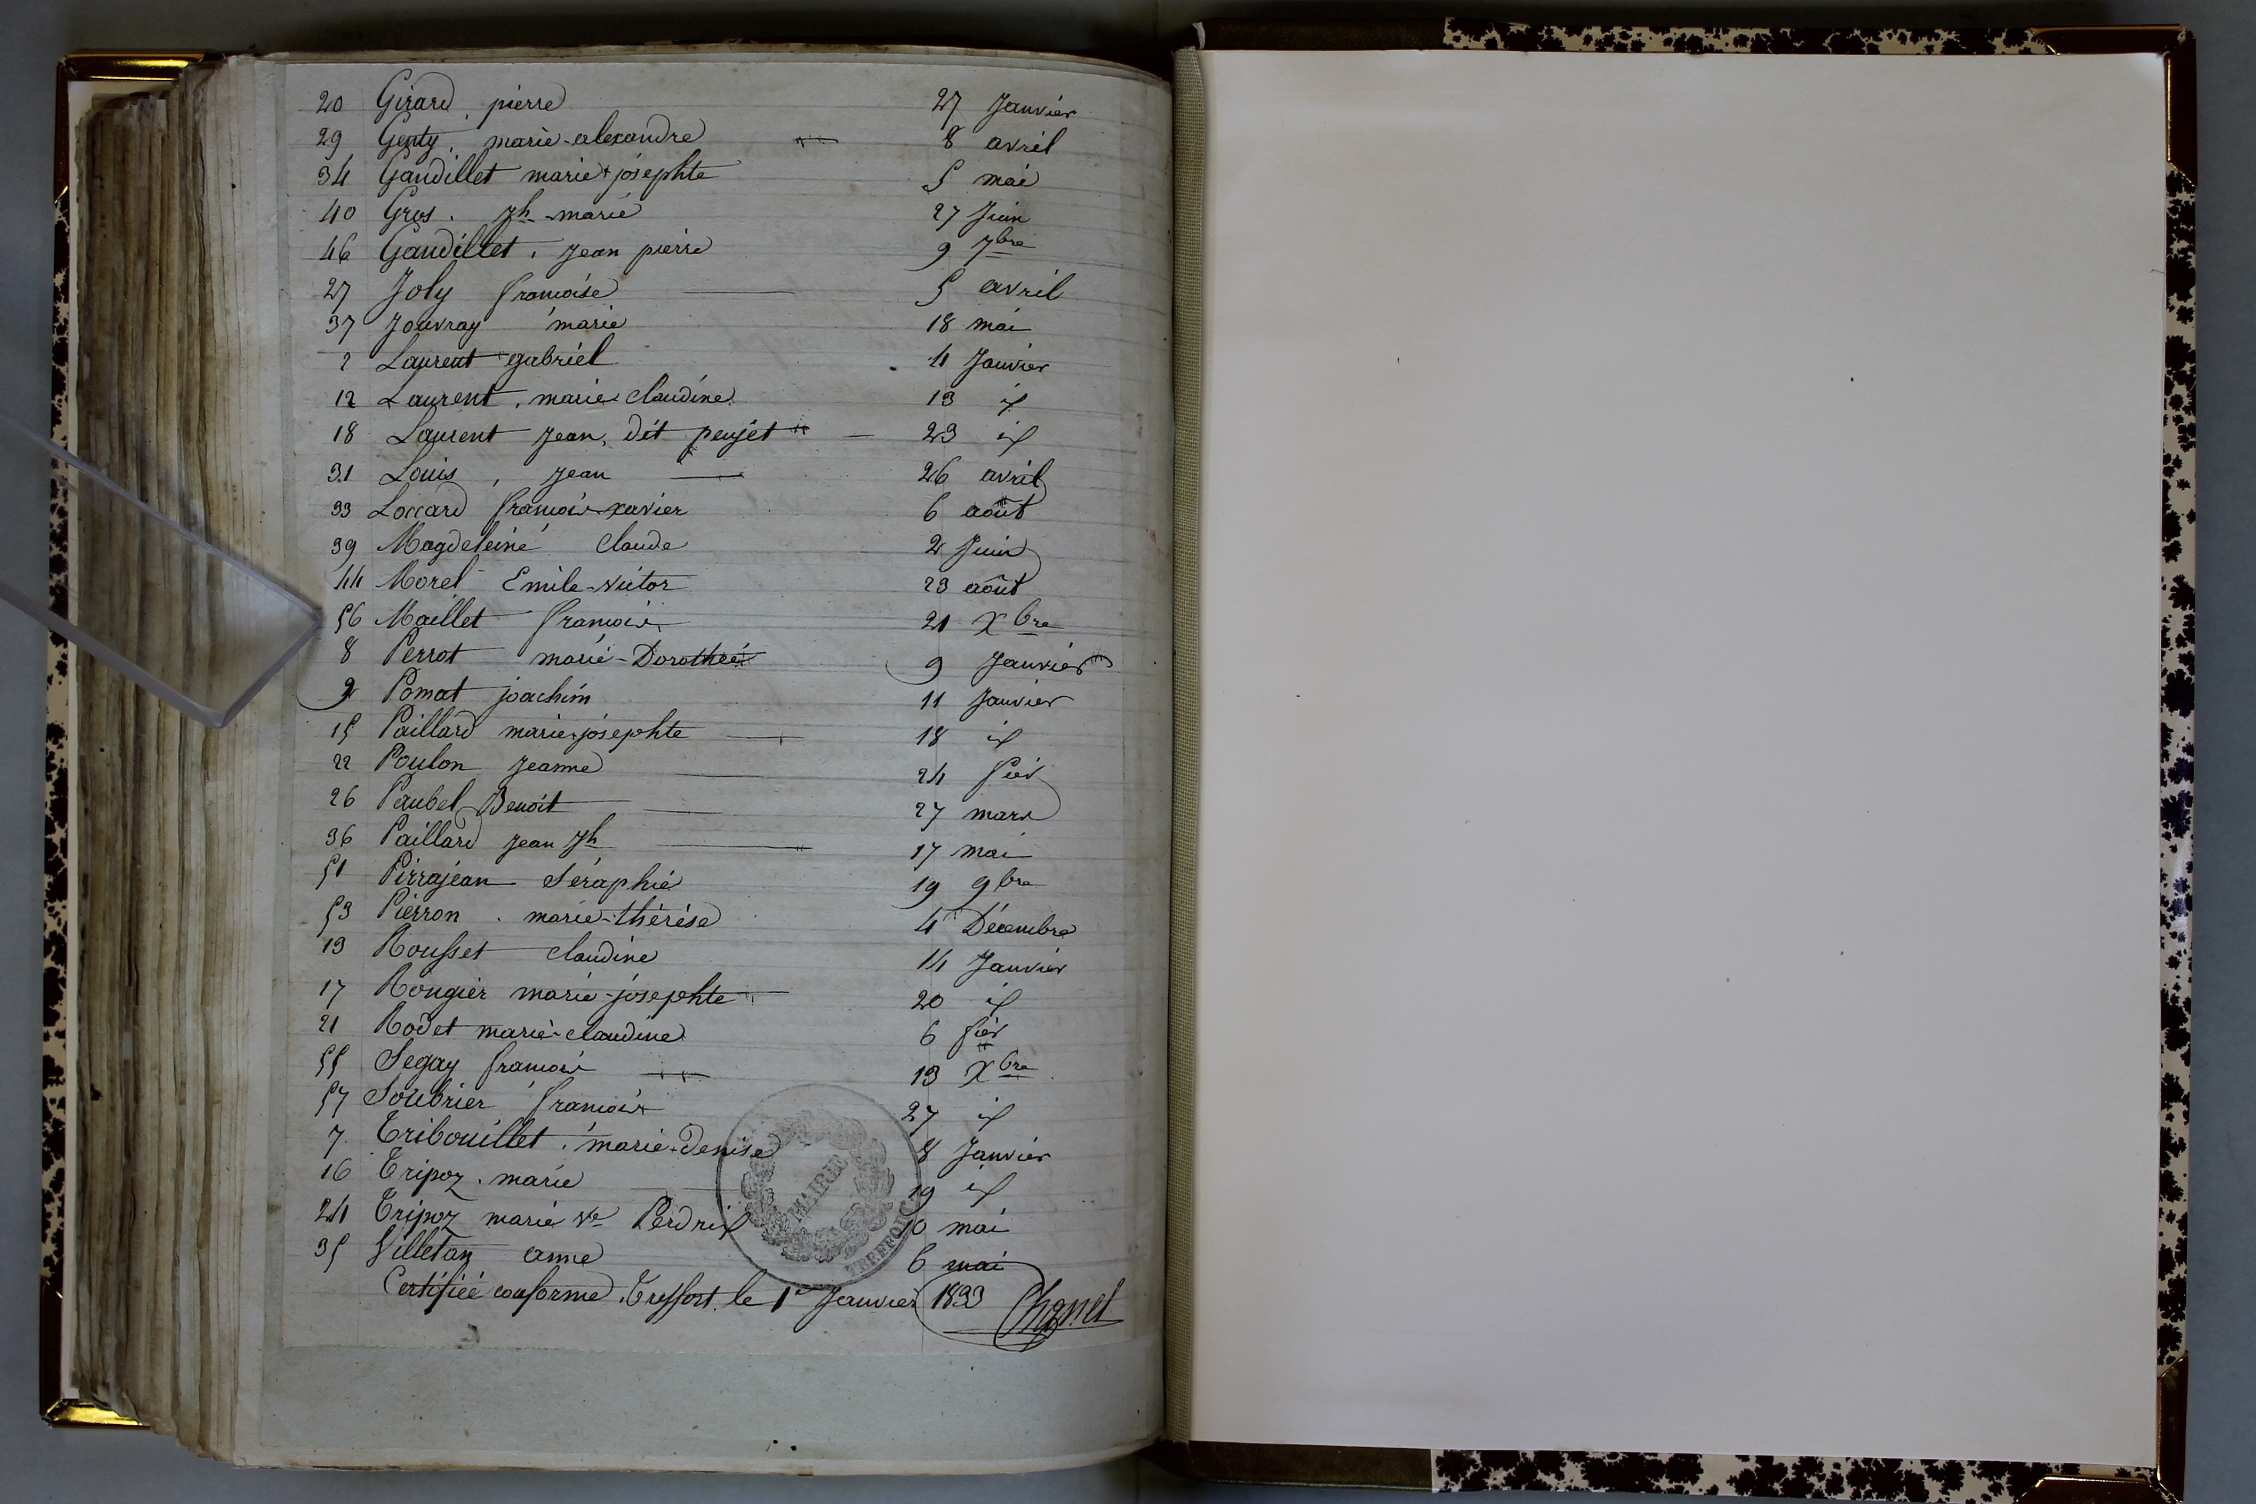 20 Girard, pierre 27 Janvier
29 Genty, marie-alexandre 8 avril
34 Gaudillet marie-josephte 5 mai
40 Gros. Jh-marie 27 Juin
46 Gaudillet, Jean pierre 9 7bre
27 Joly francoise 5 avril
37 Jouvray marie 18 mai
2 Laurent gabriel 4 Janvier
12 Laurent, marie claudine 13 id
18 Laurent Jean, dit peujet 23 id
31 Louis, Jean 26 avril
33 Loccard francois-xavier 6 août
39 Magdeleine claude 2 Juin
44 Morel Emile-victor 23 août
56 Maillet francois 21 Xbre
8 Perrot marie-Dorothée 9 Janvier
9 Pomat joachim 11 Janvier
15 Paillard marie-josephte 18 id
22 Poulon Jeanne 24 fév
26 Paubel Benoit 27 mars
36 Paillard Jean Jh 17 mai
51 Pirrajean Séraphie 19 9bre
53 Pierron. marie-thérèse 4 Décembre
13 Rousset claudine 14 Janvier
17 Rougier marie-josephte 20 id
21 Rodet marie-claudine 6 fév
55 Segay francois 13 Xbre
57 Soubrier francois 27 id
7 Tribouillet, marie-Denise 8 Janvier
16 Tripoz. marie 19 id
24 Tripoz marie ve Perdrix 10 mai
35 Villetan anne 6 mai
Certifiée conforme, Treffort, le 1er Janvier 1893 Chanel
MAIRIE
TREFFORT